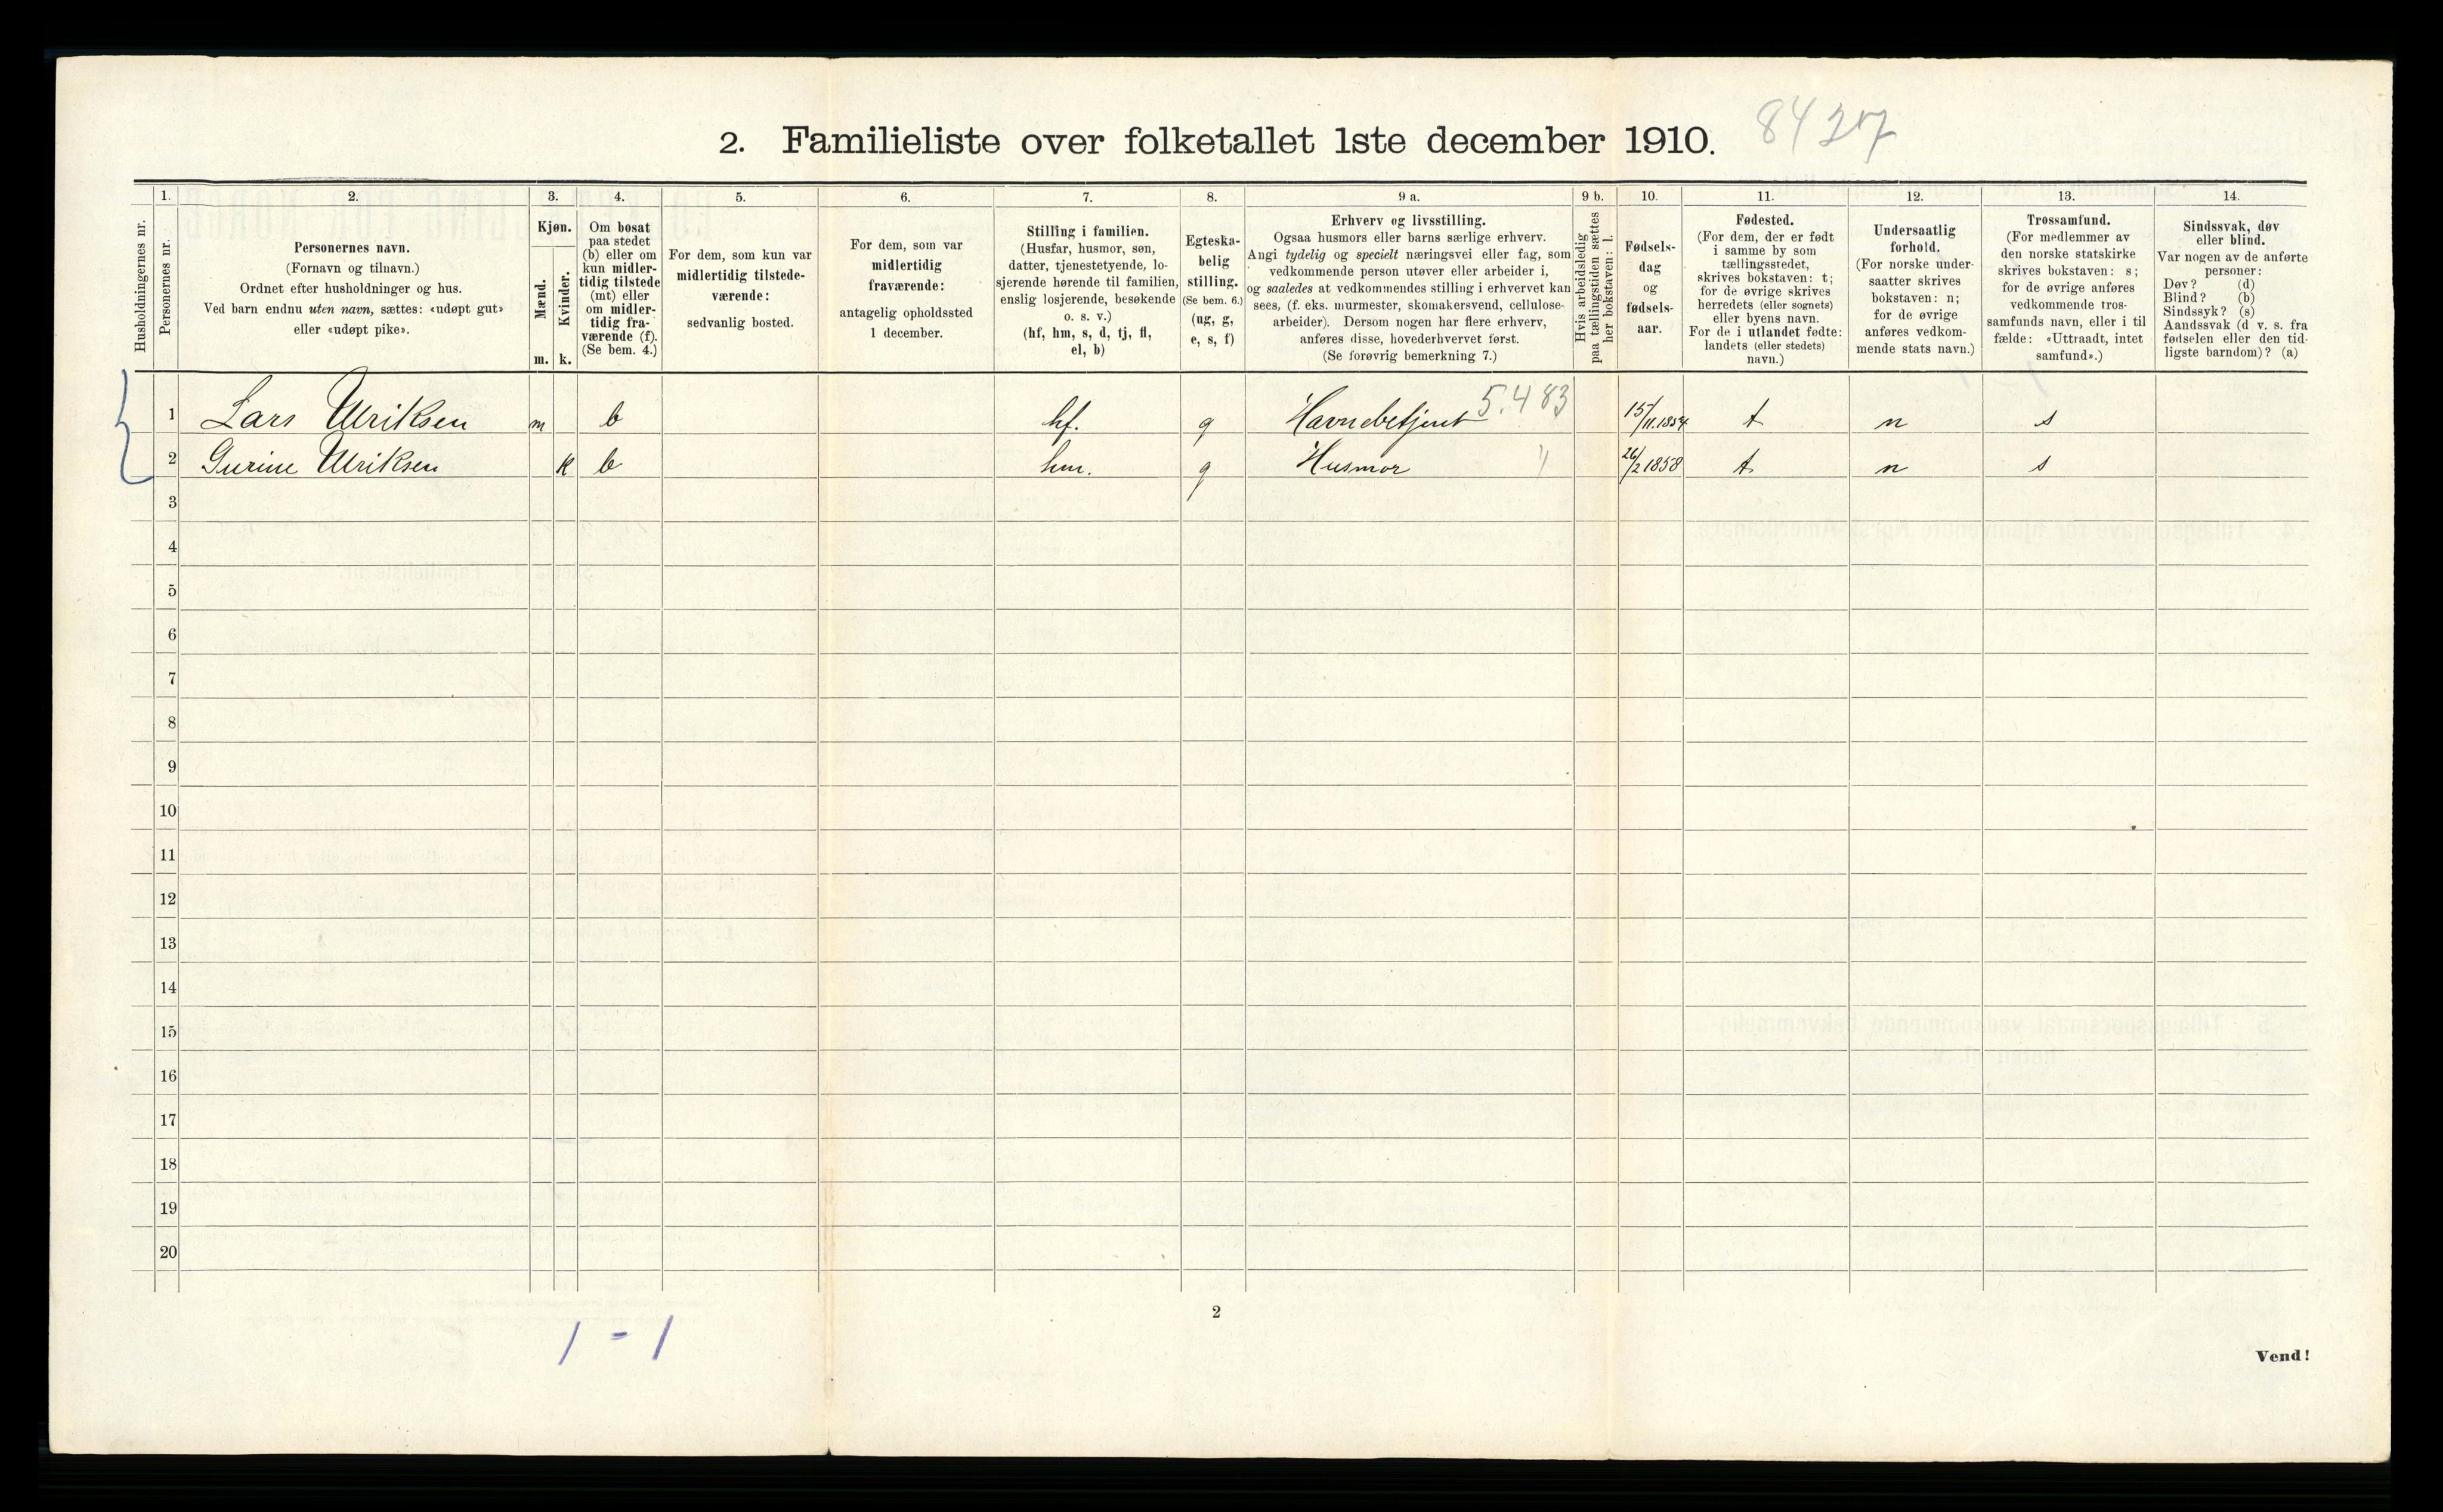 2. Familieliste over folketallet 1ste december 1910.
Husholdningernes nr.
1.
Personernes nr.
2.
Personernes navn.
(Fornavn og tilnavn.)
Ordnet efter husholdninger og hus.
Ved barn endnu uten navn, sættes: «udøpt gut»
eller «udøpt pike».
3.
Kjøn.
Mænd.
Kvinder.
m. k.
4.
Om bosat
paa stedet
(b) eller om
kun midler-
tidig tilstede
(mt) eller
om midler-
tidig fra-
værende (f).
(Se bem. 4.)
5.
For dem, som kun var
midlertidig tilstede-
værende:
sedvanlig bosted.
6.
For dem, som var
midlertidig
fraværende:
antagelig opholdssted
1 december.
7.
Stilling i familien.
(Husfar, husmor, søn,
datter, tjenestetyende, lo-
sjerende hørende til familien,
enslig losjerende, besøkende
o. s. v.)
(hf, hm, s, d, tj, fl,
el, b)
8.
Egteska-
belig
stilling.
(Se bem. 6.)
(ug, g,
e, s, f)
9 a.
Erhverv og livsstilling.
Ogsaa husmors eller barns særlige erhverv.
Angi tydelig og specielt næringsvei eller fag, som
vedkommende person utøver eller arbeider i,
og saaledes at vedkommendes stilling i erhvervet kan
sees, (f. eks. murmester, skomakersvend, cellulose-
arbeider). Dersom nogen har flere erhverv,
anføres disse, hovederhvervet først.
(Se forøvrig bemerkning 7.)
9 b.
Hvis arbeidsledig
paa tællingstiden sættes
her bokstaven: l.
10.
Fødsels-
dag
og
fødsels-
aar.
11.
Fødested.
(For dem, der er født
i samme by som
tællingsstedet,
skrives bokstaven: t;
for de øvrige skrives
herredets (eller sognets)
eller byens navn.
For de i utlandet fødte:
landets (eller stedets)
navn.)
12.
Undersaatlig
forhold.
(For norske under-
saatter skrives
bokstaven: n;
for de øvrige
anføres vedkom-
mende stats navn.)
13.
Trossamfund.
(For medlemmer av
den norske statskirke
skrives bokstaven: s;
for de øvrige anføres
vedkommende tros-
samfunds navn, eller i til
fælde: «Uttraadt, intet
samfund».)
14.
Sindssvak, døv
eller blind.
Var nogen av de anførte
personer:
Døv? (d)
Blind? (b)
Sindssyk? (s)
Aandssvak (d v. s. fra
fødselen eller den tid-
ligste barndom)? (a)
1 Lars Ulriksen m b hf. g Havnebetjent 5.483 15/11.1854 t n s
2 Gurine Ulriksen k b hm. g Husmor " 26/2 1858 t. n s
3
4
5
6
7
8
9
10
11
12
13
14
15
16
17
18
19
20
1 - 1
2
Vend!